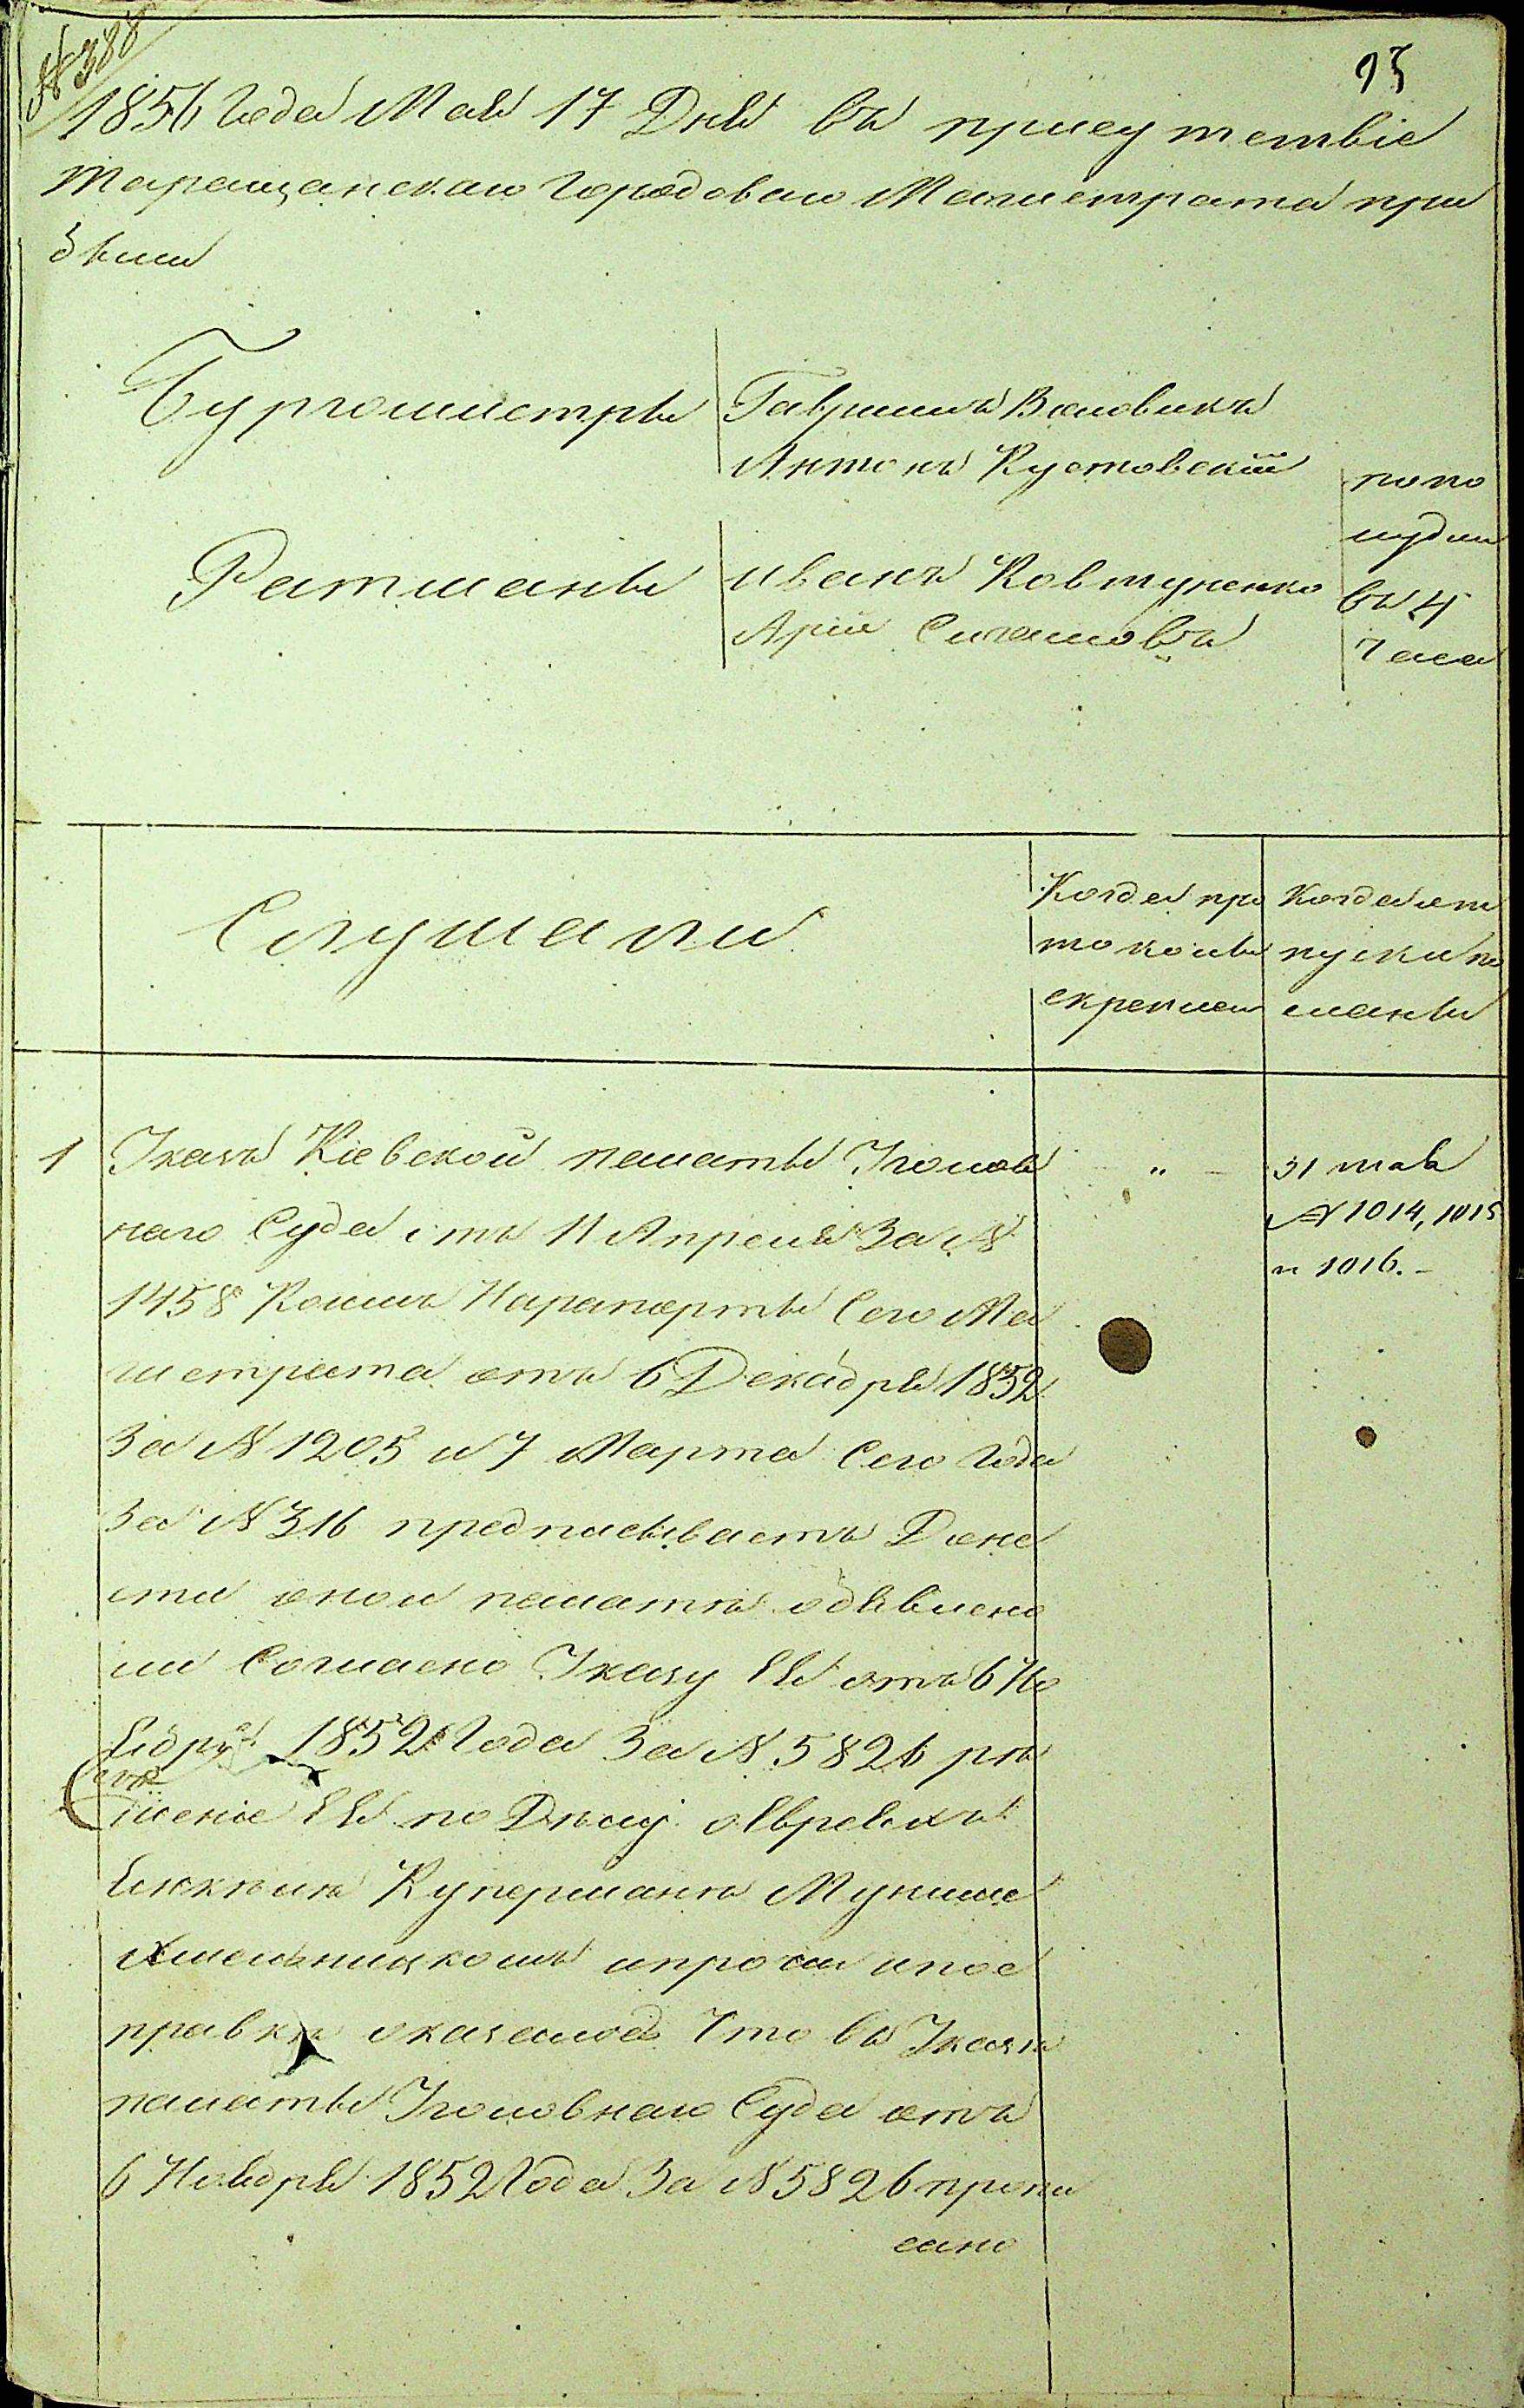 № 388
93
1856 года Мая 17 Дня въ присутствіе
Таращанскаго Городоваго Магистрата при
были
Бургомистры
Гаврилъ Воловикъ
Антонъ Кустовскій
Ратманы
иванъ Ковтуненко
Арій
попо
лудни
въ 4
часа
Слушали
Когда про
токолы
скреплен
Когда от
пуски по
сланы
1
Указъ Кіевской палаты Уголов
наго Суда отъ 11 Апреля За №
1458 Коимъ Нарапорты Сего Ма
гистрата отъ 6 Декабря 1852
За № 1205 и 7 Марта Сего Года
За № 316 предписываетъ Доне
сти оной палатѣ обявлено
ли Согласно Указу ЕЯ отъ 6 Но
ября 1852 Года За № 5826 рѣ
шеніе ЕЯ по Дѣлу оЕвреяхъ
Купермане
Хмельницкомъ ипрочи ипос
правкѣ оказалось Что въ Указѣ
палаты Уголовнаго Суда отъ
6 Ноября 1852 Года За № 5826 пропи
сано
" -
31 мая
№ 1014, 1015
и 1016. -